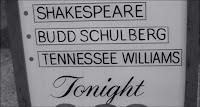 • SHAKESPEARE
• BUDD SCHULBERG
• TENNESSEE WILLIAMS
Tonight